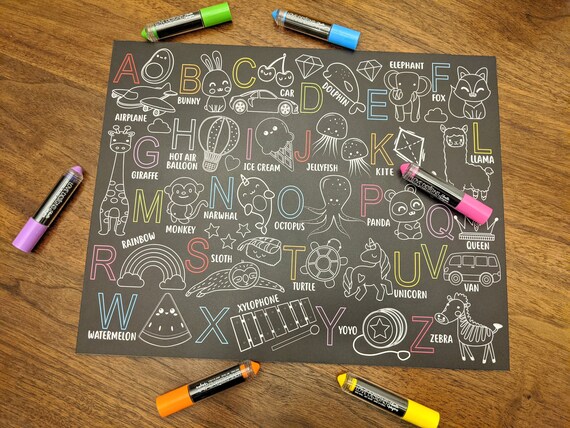 A B C D E F
AIRPLANE BUNNY CAR DOLPHIN ELEPHANT FOX
G H I J K L
GIRAFFE HOT AIR BALLOON ICE CREAM JELLYFISH KITE LLAMA
M N O P Q
MONKEY NARWHAL OCTOPUS PANDA QUEEN
R S T U V
RAINBOW SLOTH TURTLE UNICORN VAN
W X Y Z
WATERMELON XYLOPHONE YOYO ZEBRA